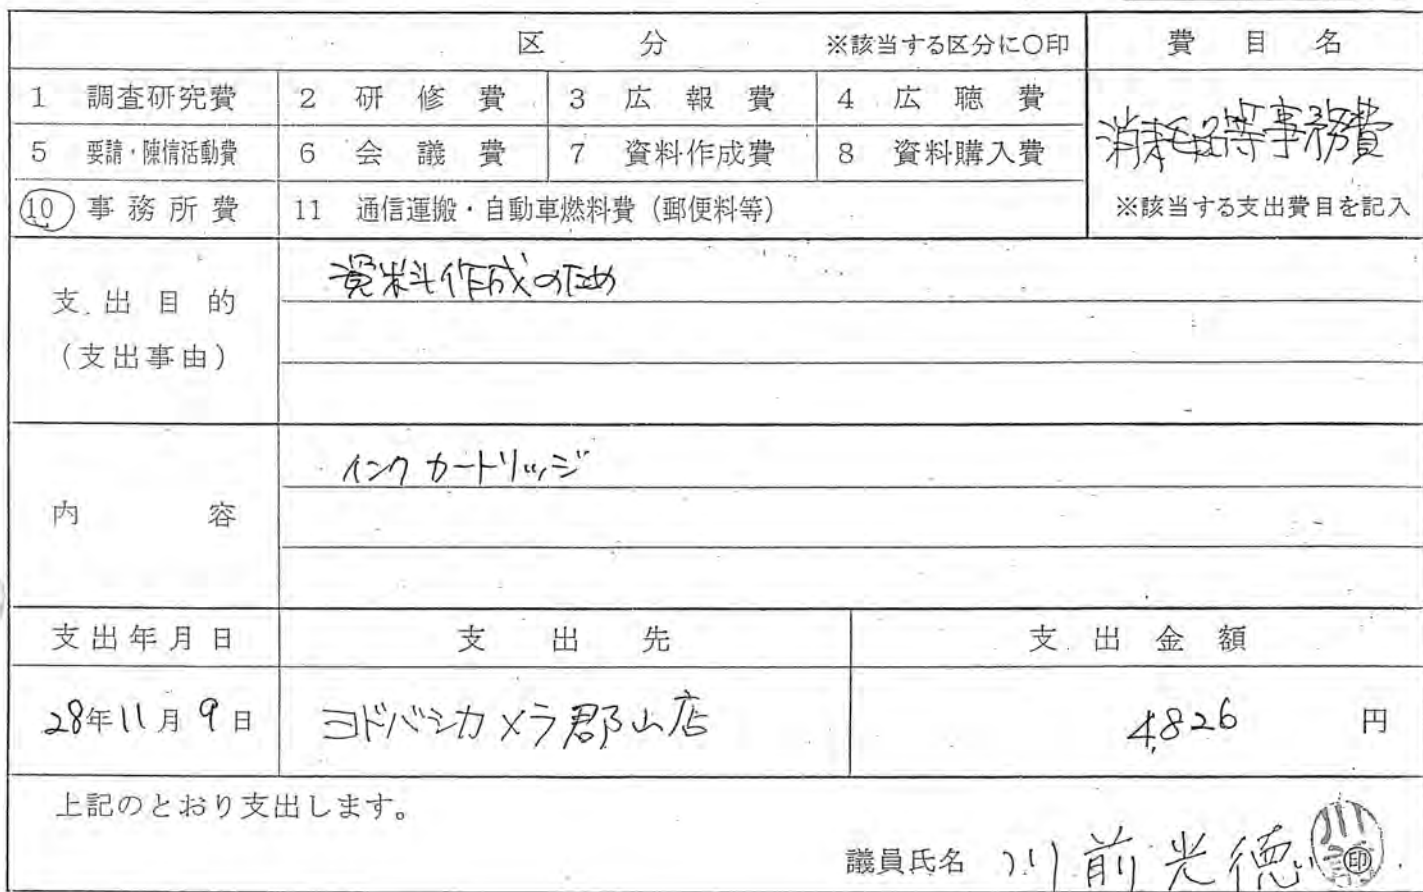 区 分 ※該当する区分に○印 費目名
1 調査研究費 2 研修費 3 広報費 4 広聴費
消耗品等事務費
5 要請・陳情活動費 6 会議費 7 資料作成費 8 資料購入費
10 事務所費 11 通信運搬・自動車燃料費(郵便料等) ※該当する支出費目を記入
資料作成のため
支出目的
(支出事由)
インクカートリッジ
内容
支出年月日 支出先 支出金額
28年11月9日 ヨドバシカメラ郡山店 4,826 円
上記のとおり支出します。
議員氏名 川前光徳 印